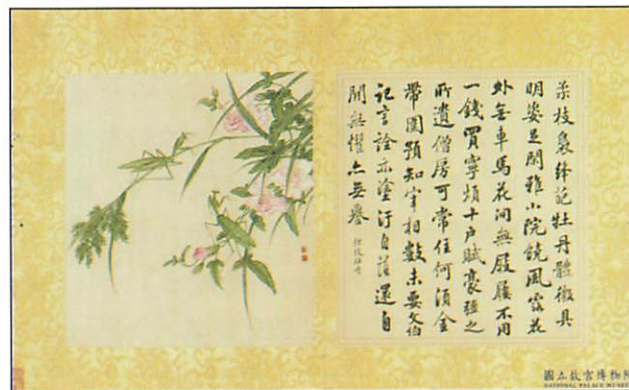 柔枝裊絳葩牡丹體微具
明姿足閑雅小院饒風露花
外無車馬花間無屐履不用
一錢買寧煩十戶賦豪強之
所遺僧房可常住何須金
帶圍預知宰相數未要文伯
記言詮亦塗汙自落還自
開無懼亦無譽 纏枝牡丹
國立故宮博物院
NATIONAL PALACE MUSEUM